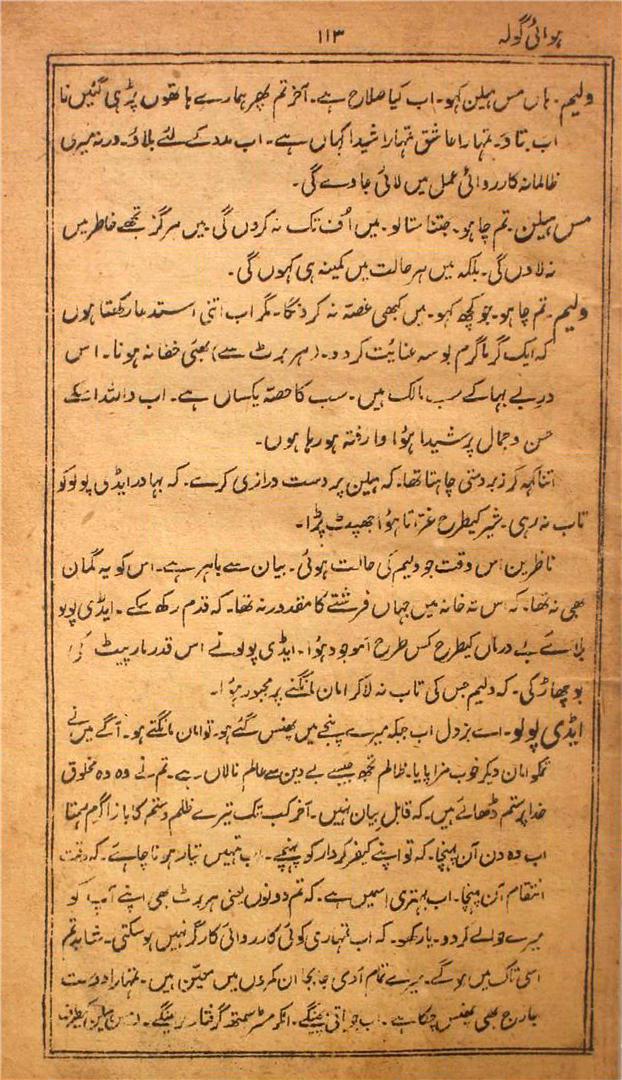 ہوائی گولہ ۱۱۳
ولیم۔ ہاں مس ہیلن کہو۔ اب کیا صلاح ہے۔ آخر تم پھر ہمارے ہاتھوں پڑہی گئیں نا
اب بتاؤ۔ تمہارا عاشق تمہارا شیدا کہاں ہے۔ اب مدد کے لئے بلاؤ۔ ورنہ میری
ظالمانہ کارروائی عمل میں لائی جاوے گی۔
مس ہیلن۔ تم چاہو۔ جتنا ستالو۔ میں اُف تک نہ کروں گی۔ میں ہرگز تجھے خاطر میں
نہ لاوں گی۔ بلکہ میں ہر حالت میں کمینہ ہی کہوں گی۔
ولیم۔ تم چاہو۔ جو کچھ کہو۔ میں کبھی غصّہ نہ کرونگا۔ مگر اب اتنی استدعا رکھتا ہوں
کہ ایک گرما گرم بوسہ عنایت کردو۔ (ہربرٹ سے) بھئی خفا نہ ہونا۔ اس
درِ بے بہا کے سب مالک ہیں۔ سب کا حصّہ یکساں ہے۔ اب واللہ اسکے
حسن و جمال پر شیدا ہؤا وارفتہ ہو رہا ہوں۔
اتنا کہہ کر زبردستی چاہتا تھا۔ کہ ہیلن پر دست درازی کرے۔ کہ بہادر ایڈی پولو کو
تاب نہ رہی۔ شیر کیطرح غرّاتا ہؤا جھپٹ پڑا۔
ناظرین اس وقت جو ولیم کی حالت ہوئی۔ بیان سے باہر ہے۔ اس کو یہ گمان
بھی نہ تھا۔ کہ اس تہ خانہ میں جہاں فرشتے کا مقدور نہ تھا۔ کہ قدم رکھ سکے۔ ایڈی پولو
بلائے بے درماں کیطرح کس طرح آموجود ہؤا۔ ایڈی پولو نے اس قدر مارپیٹ کی
بوچھاڑ کی۔ کہ ولیم جس کی تاب نہ لاکر امان مانگنے پر مجبور ہؤا۔
ایڈی پولو۔ اے بزدل اب جبکہ میرے پنجے میں پھنس گئے ہو۔ تو امان مانگتے ہو۔ آگے میں نے
تمکو امان دیکر خوب مزا پایا۔ ظالم تجھ جیسے بے دین سے عالم نالاں ہے۔ تم نے وہ وہ مخلوق
خدا پر ستم ڈھائے ہیں۔ کہ قابل بیان نہیں۔ آخر کب تک تیرے ظلم و ستم کا بازار گرم رہتا
اب وہ دن آن پہنچا۔ کہ تو اپنے کیفر کردار کو پہنچے۔ اب تمہیں تیار ہونا چاہئے۔ کہ وقت
انتقام آن پہنچا۔ اب بہتری اسمیں ہے۔ کہ تم دونوں یعنی ہربرٹ بھی اپنے آپ کو
میرے حوالے کردو۔ یاد رکھو۔ کہ اب تمہاری کوئی کارروائی کارگر نہیں ہو سکتی۔ شاید تم
اسی تاک میں ہو گے۔ میرے تمام آدمی جابجا ان کمروں میں معیّن ہیں۔ تمہارا دوست
جارج بھی پھنس چکا ہے۔ اب مسٹر سمتھ گرفتار